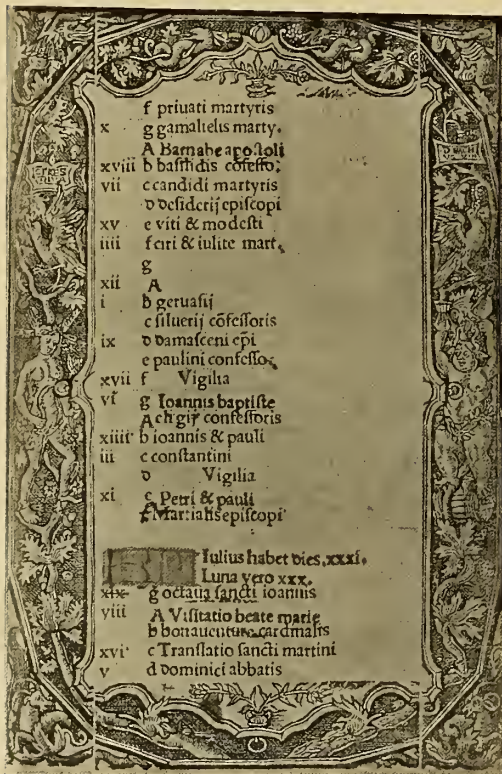 f priuati martyris
x g gamalielis marty.
A Barnabe apostoli
xviii b basilidis cōfesso.
vii c candidi martyris
d desiderij episcopi
xv e viti & modesti
iiii f ciri & iulite mart.
g
xii A
i b geruasij
c siluerij cōfessoris
ix d damasceni ep̄i
e paulini confesso.
xvii f Vigilia
vi g Ioannis baptiste
A confessoris
xiiii b ioannis & pauli
iii c constantini
d Vigilia
xi e Petri & pauli
f Martialis episcopi
Iulius habet dies.xxxi.
Luna vero xxx.
xix g octaua sancti ioannis
viii A Visitatio beate marie
b bonauenture cardinalis
xvi c Translatio sancti martini
v d dominici abbatis